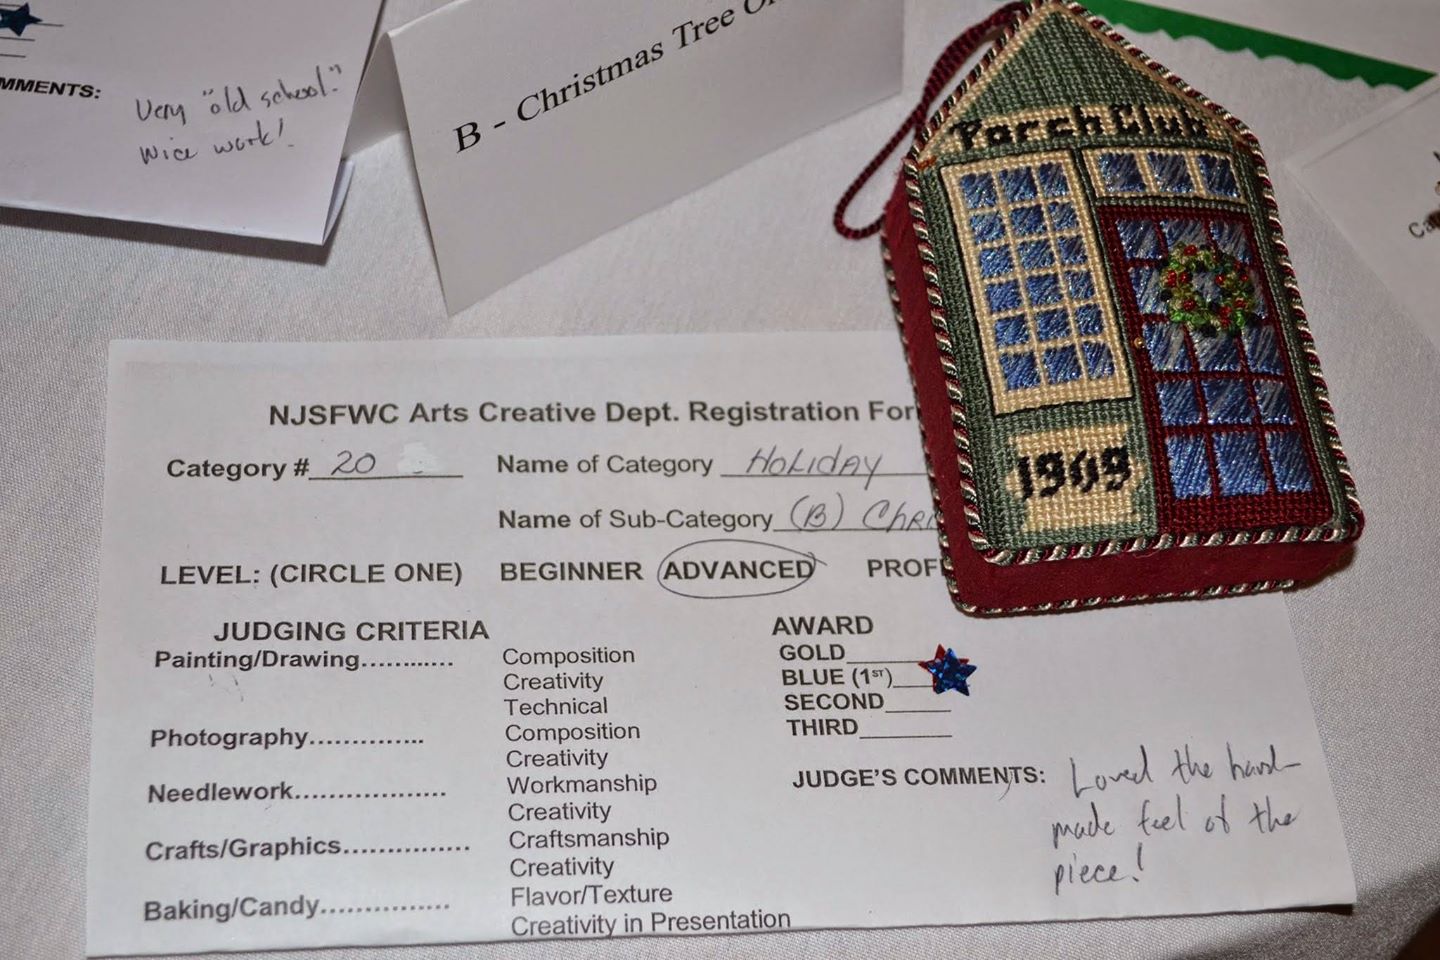 MMENTS:
Very "old school."
Nice work!
B - Christmas Tree
Porch Club
1909
NJSFWC Arts Creative Dept. Registration For
Category # 20
Name of Category HOLIDAY
Name of Sub-Category (B) CHRI
LEVEL: (CIRCLE ONE) BEGINNER ADVANCED PROF
JUDGING CRITERIA
AWARD
Painting/Drawing............ Composition
Creativity
Technical
Photography.............. Composition
Creativity
Needlework.................. Workmanship
Creativity
Crafts/Graphics............... Craftsmanship
Creativity
Baking/Candy............... Flavor/Texture
Creativity in Presentation
GOLD
BLUE (1ST)
SECOND
THIRD
JUDGE'S COMMENTS: Loved the hand-
made feel of the
piece!